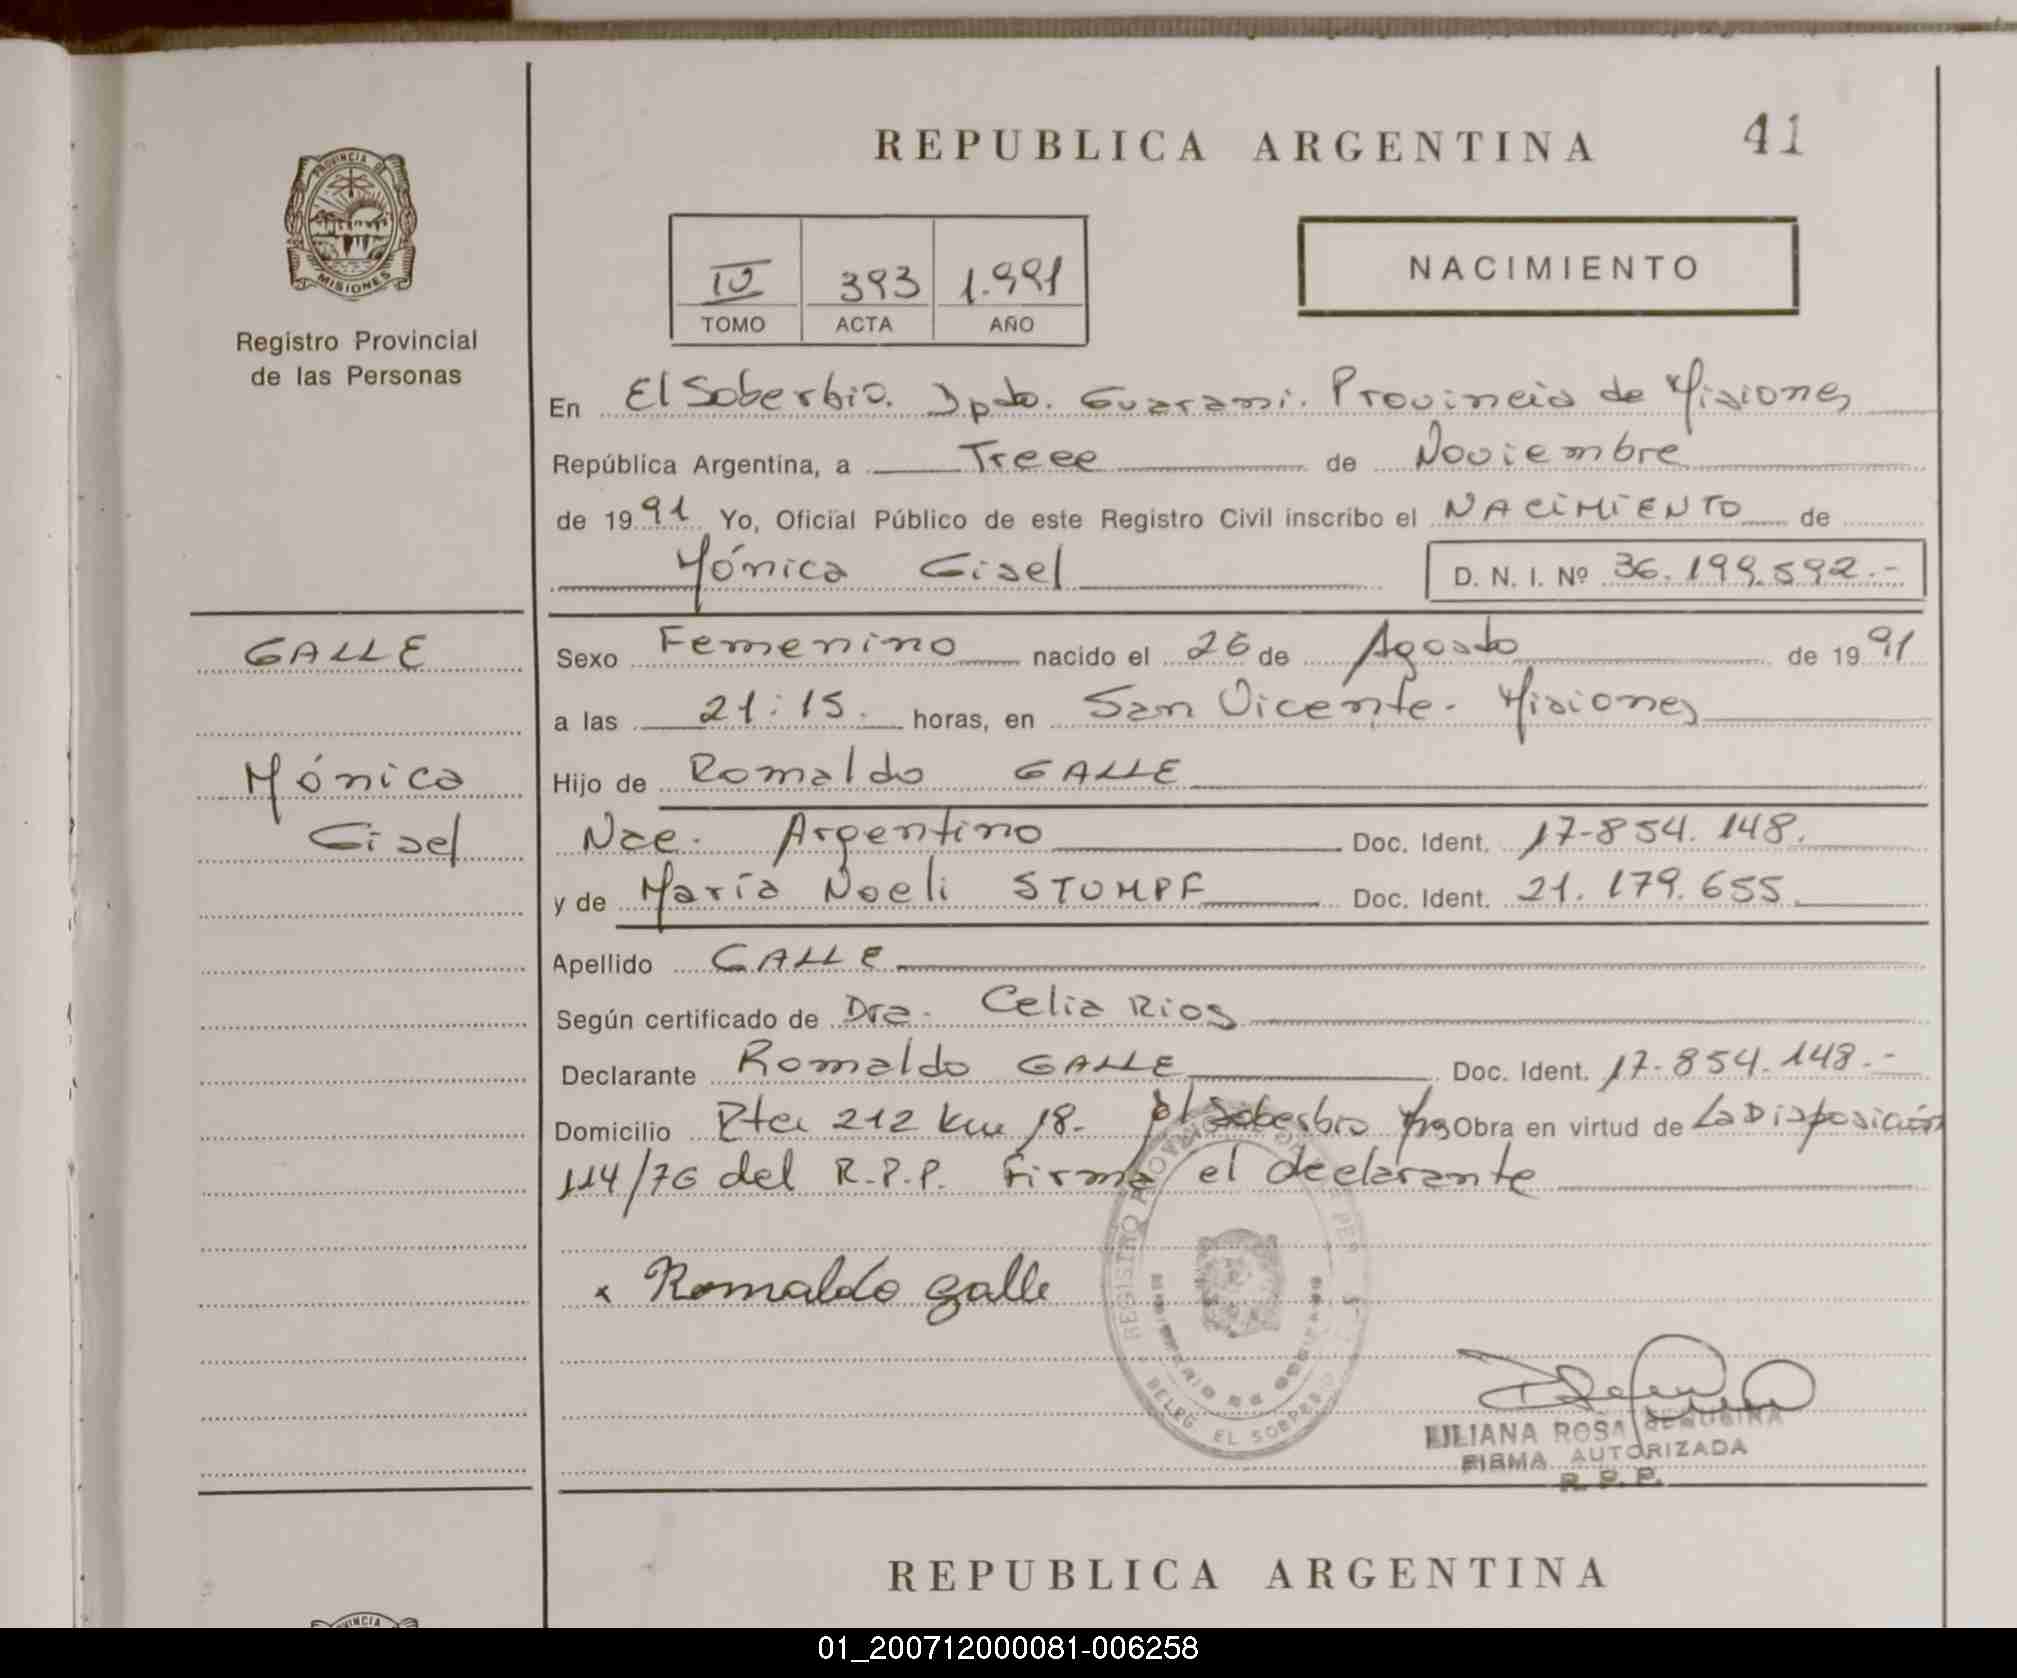 REPUBLICA ARGENTINA
41
PROVINCIA DE
MISIONES
Registro Provincial
de las Personas
IV 393 1.991
TOMO ACTA AÑO
NACIMIENTO
En El Soberbio. Dpto. Guarani. Provincia de Misiones
República Argentina, a Trece de Noviembre
de 1991 Yo, Oficial Público de este Registro Civil inscribo el NACIMIENTO de
Mónica Gisel D. N. I. Nº 36.199.592.-
GALLE
Mónica
Gisel
Sexo Femenino nacido el 26 de Agosto de 1991
a las 21:15. horas, en San Vicente. Misiones
Hijo de Romaldo GALLE
Nac. Argentino Doc. Ident. 17-854.148.
y de María Noeli STUMPF Doc. Ident. 21.179.655
Apellido GALLE
Según certificado de Dra. Celia Rios
Declarante Romaldo GALLE Doc. Ident. 17-854.148.-
Domicilio Rta 212 km 18. El Soberbio Obra en virtud de La Disposición
114/76 del R.P.P. Firma el declarante
x Romaldo galle
REGISTRO
DELEG. EL SOBERBIO
LILIANA ROSA
FIRMA AUTORIZADA
R. P. P.
REPUBLICA ARGENTINA
VINCIA
01_200712000081-006258